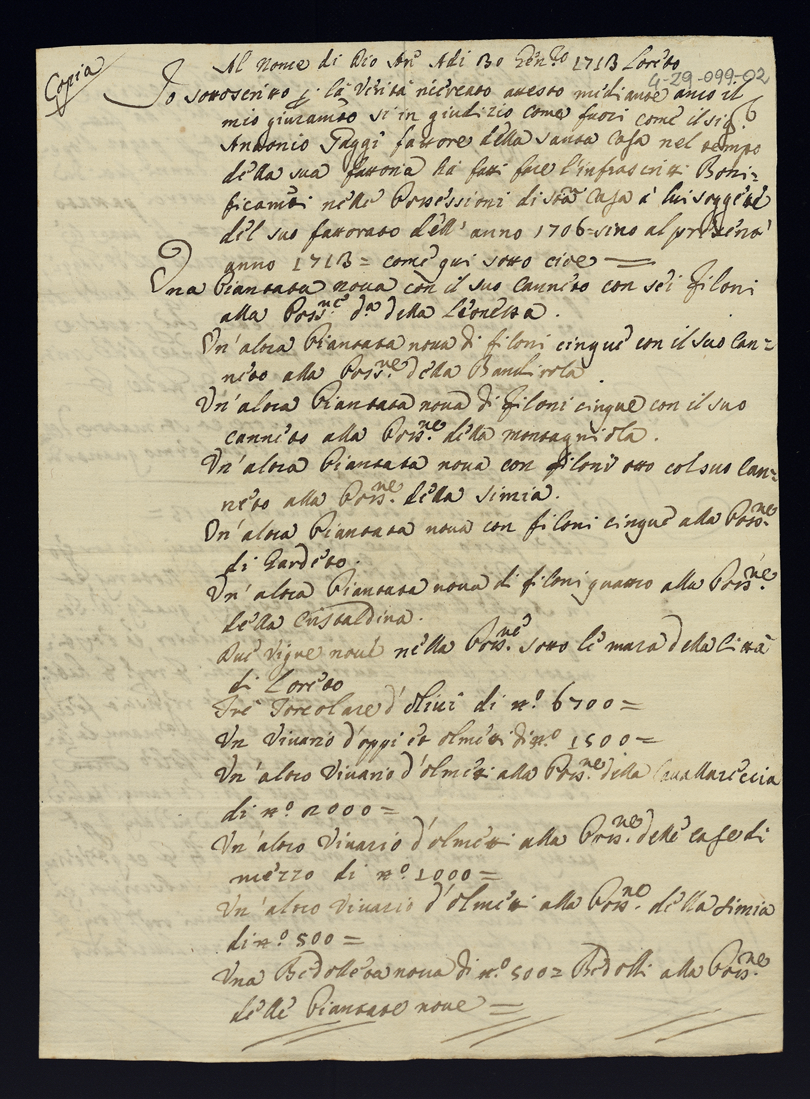 Copia
Al Nome di Dio An: Adi 30 Genro 1713 Loreto
4-29-099-02
Io sottoscritto p. la Verità ricercato attesto mediante anco il
mio giuramto sì in giudizio come fuori come il sig.
6
Antonio Gaggi fattore della Santa Casa nel tempo
della sua fattoria ha fatti fare l'infrascritti Boni-
ficamti nelle Possessioni di Sta Casa à lui soggette
del suo fattorato dell'anno 1706 = sino al presente
anno 1713 = come qui sotto cioe =
Una Piantata nova con il suo Canneto con sei filoni
alla Possne da della Leonessa.
Un'altra Piantata nova di filoni cinque con il suo Can=
neto alla Possne della Bandirola
Un'altra Piantata nova di filoni cinque con il suo
canneto alla Possne della montagniola.
Un'altra Piantata nova con filoni otto col suo Can=
neto alla Possne della Simia.
Un'altra Piantata nova con filoni cinque alla Possne
di Gardeto.
Un'altra Piantata nova di filoni quattro alla Possne
della Cristaldina.
Due Vigne nove nella Possne sotto le mura della Città
di Loreto
Tre Torcolare d'Olivi di no. 6700 =
Un Vivario d'oppi et olmetti di no. 1500 =
Un'altro Vivario d'olmetti alla Possne della Cavallareccia
di no. 2000 =
Un'altro Vivario d'olmetti alla Possne delle case di
mezzo di no. 1000 =
Un'altro Vivario d'olmetti alla Possne della Simia
di no. 500 =
Una Bedolleta nova di no. 500 = Bedolli alla Possne
delle Piantate nove =